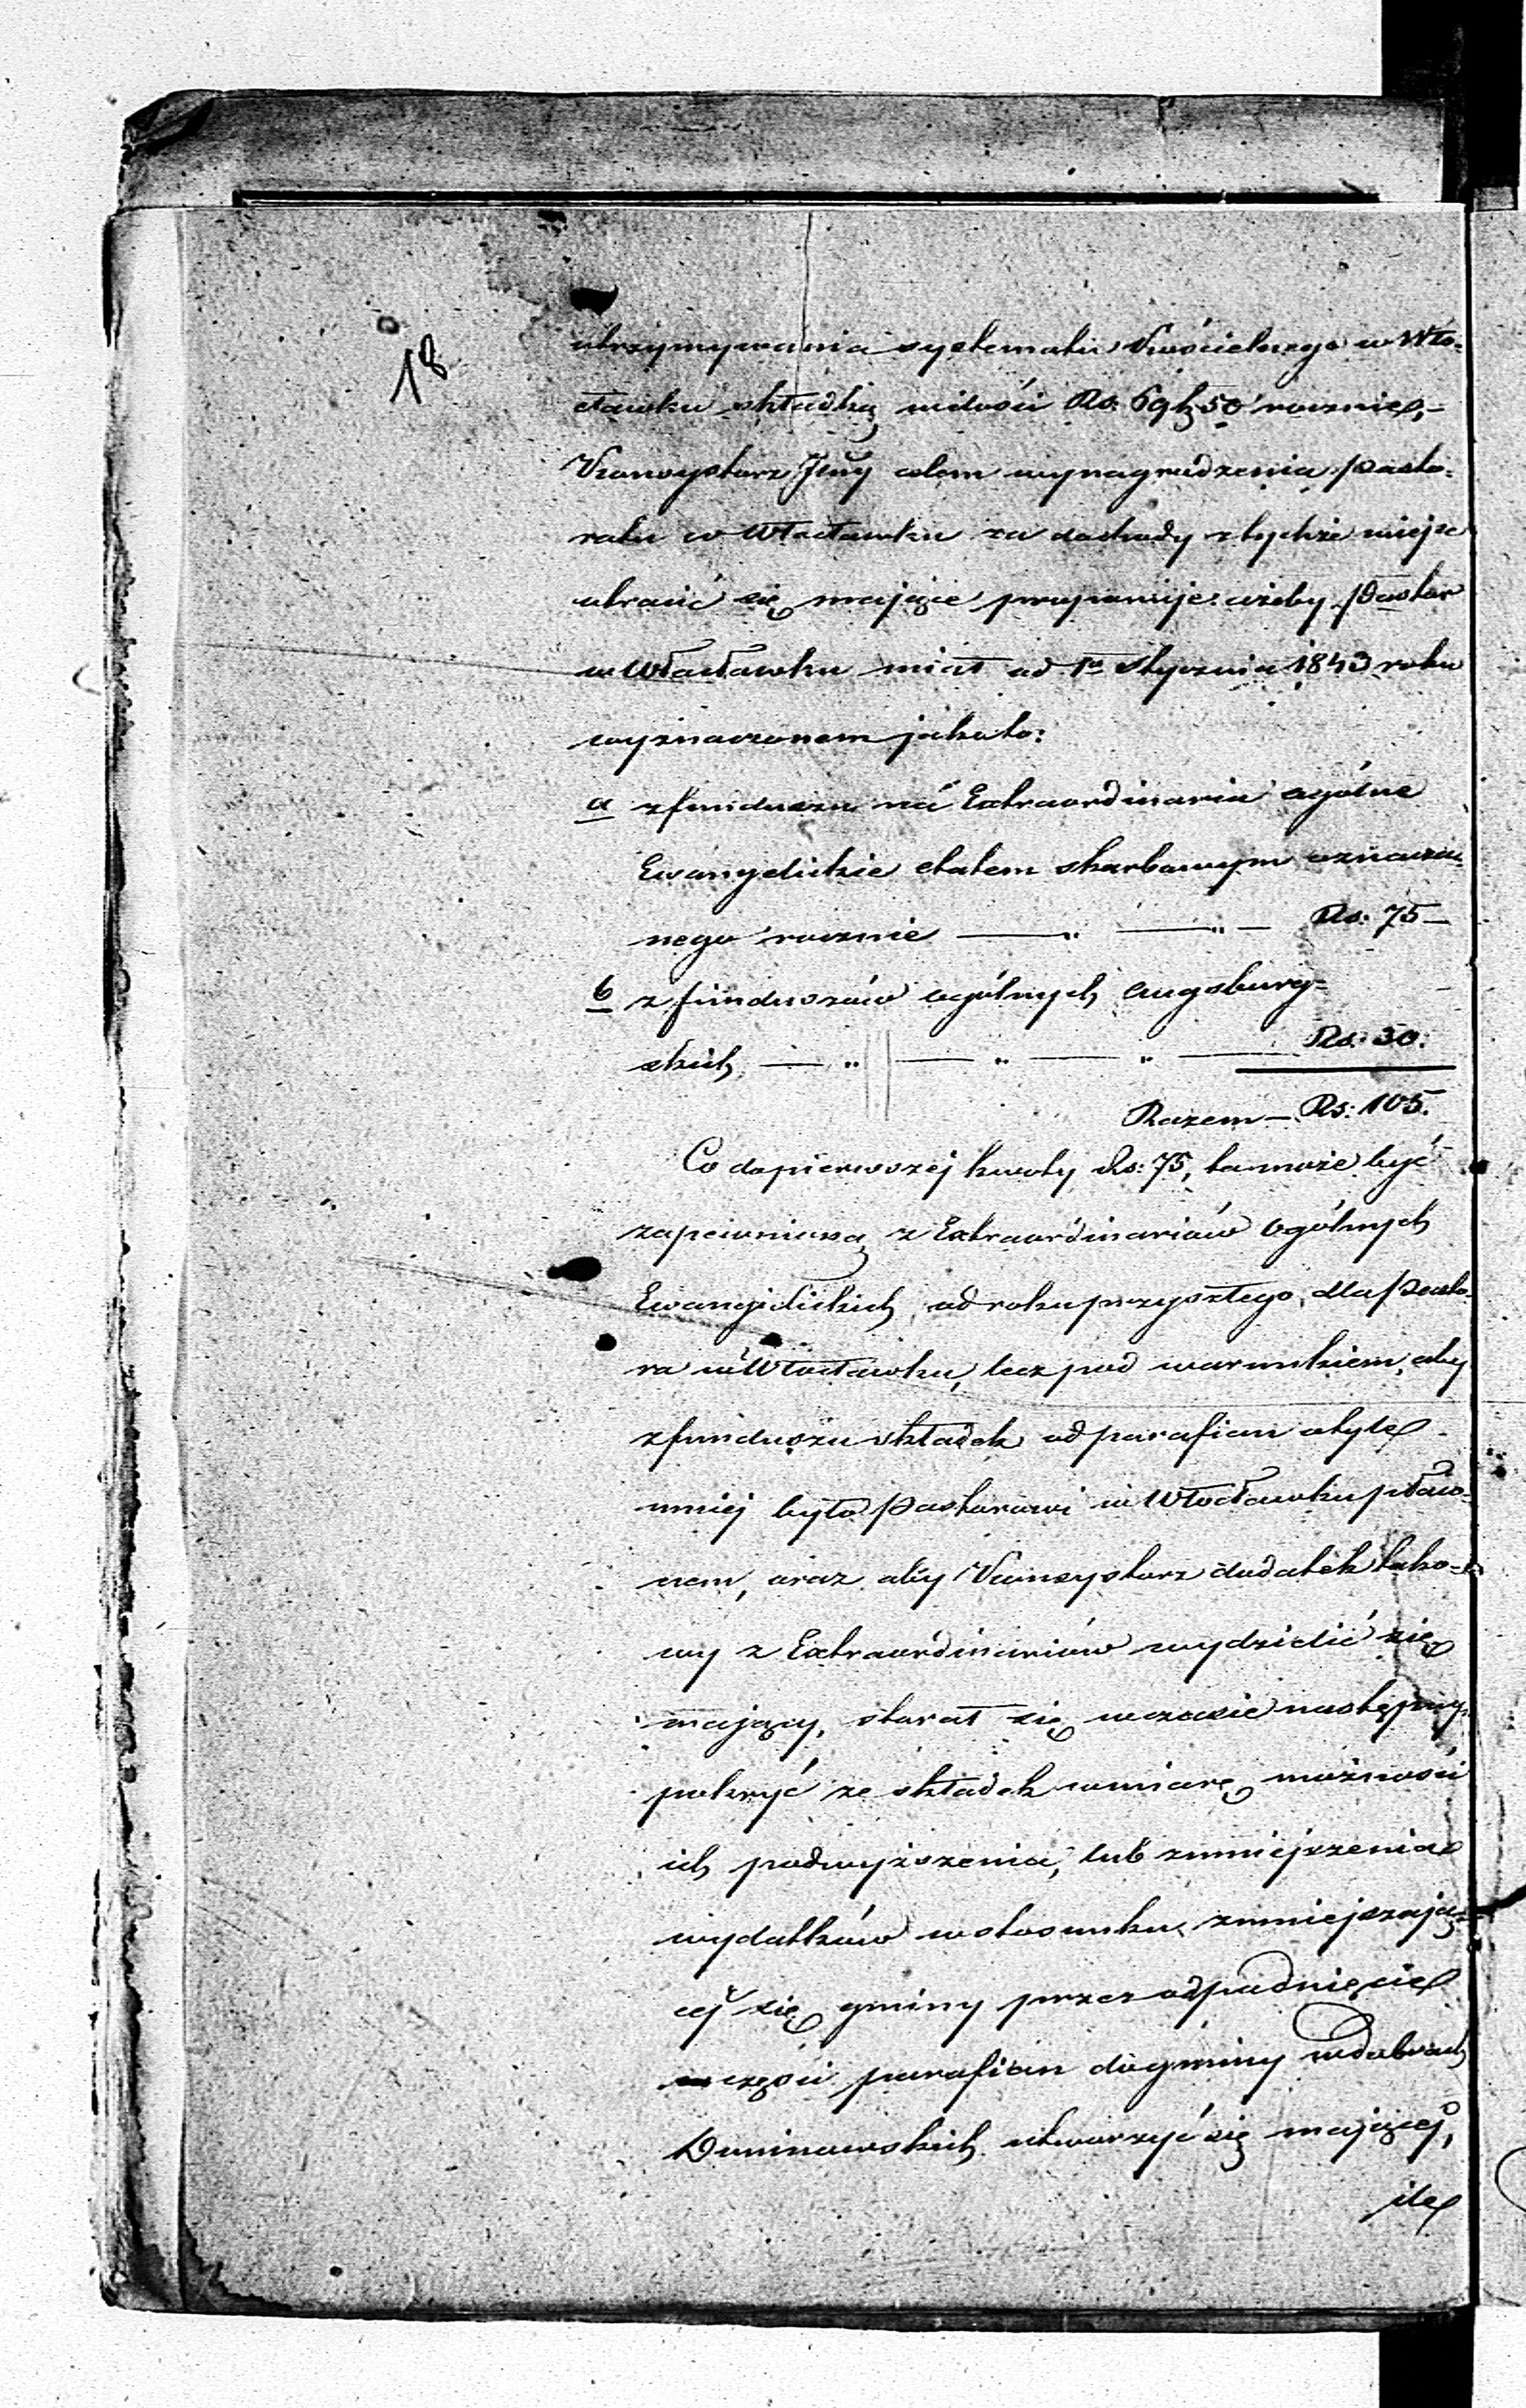 18
utrzymywania systematu Kościelnego w Wło-
cławku składką w ilości Rs. 69 k 50 rocznie,-
Konsystorz Jlny celem wynagrodzenia Pasto-
ratu w Włocławku za dochody z tychże miejsc
utracić się mające proponuje: ażeby Pastor
w Włocławku miał od 1go Stycznia 1843 roku
wyznaczonem jako to:
a z funduszu na Extraordinaria ogólne
Ewangelickie etatem skarbowym oznaczo-
nego rocznie — " — " — Rs: 75 —
b z funduszów ogólnych Augsburg-
skich — " — " — " — Rs: 30:
Razem — Rs: 105.
Co do pierwszej kwoty Rs: 75, ta może być
zapewnioną z Extraordinariów ogólnych
Ewangelickich od roku przyszłego, dla Pasto-
ra w Włocławku, lecz pod warunkiem, aby
z funduszu składek od parafian o tyle
mniej było Pastorowi w Włocławku płaco-
nem, oraz aby Konsystorz dodatek tako-
wy z Extraordinariów wydzielić się
mający, starał się w czasie następny
pokryć ze składek w miarę możności
ich podwyższenia, lub zmniejszenia
wydatków w stosunku zmniejszają-
cej się gminy przez odpadnięcie
części parafian do gminy w dobrach
Duninowskich utworzyć się mającej,
ile